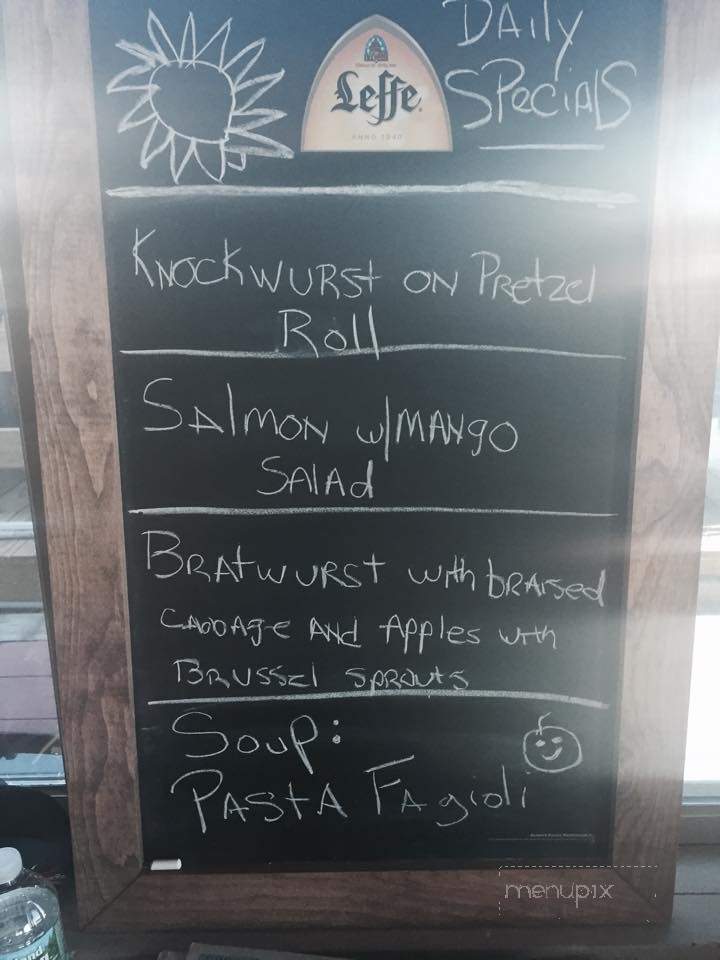 Daily
Leffe
Specials
ANNO 1240
Knockwurst on Pretzel
Roll
Salmon w/mango
Salad
Bratwurst with braised
cabbage and Apples with
Brussel sprouts
Soup:
Pasta Fagioli
menupix